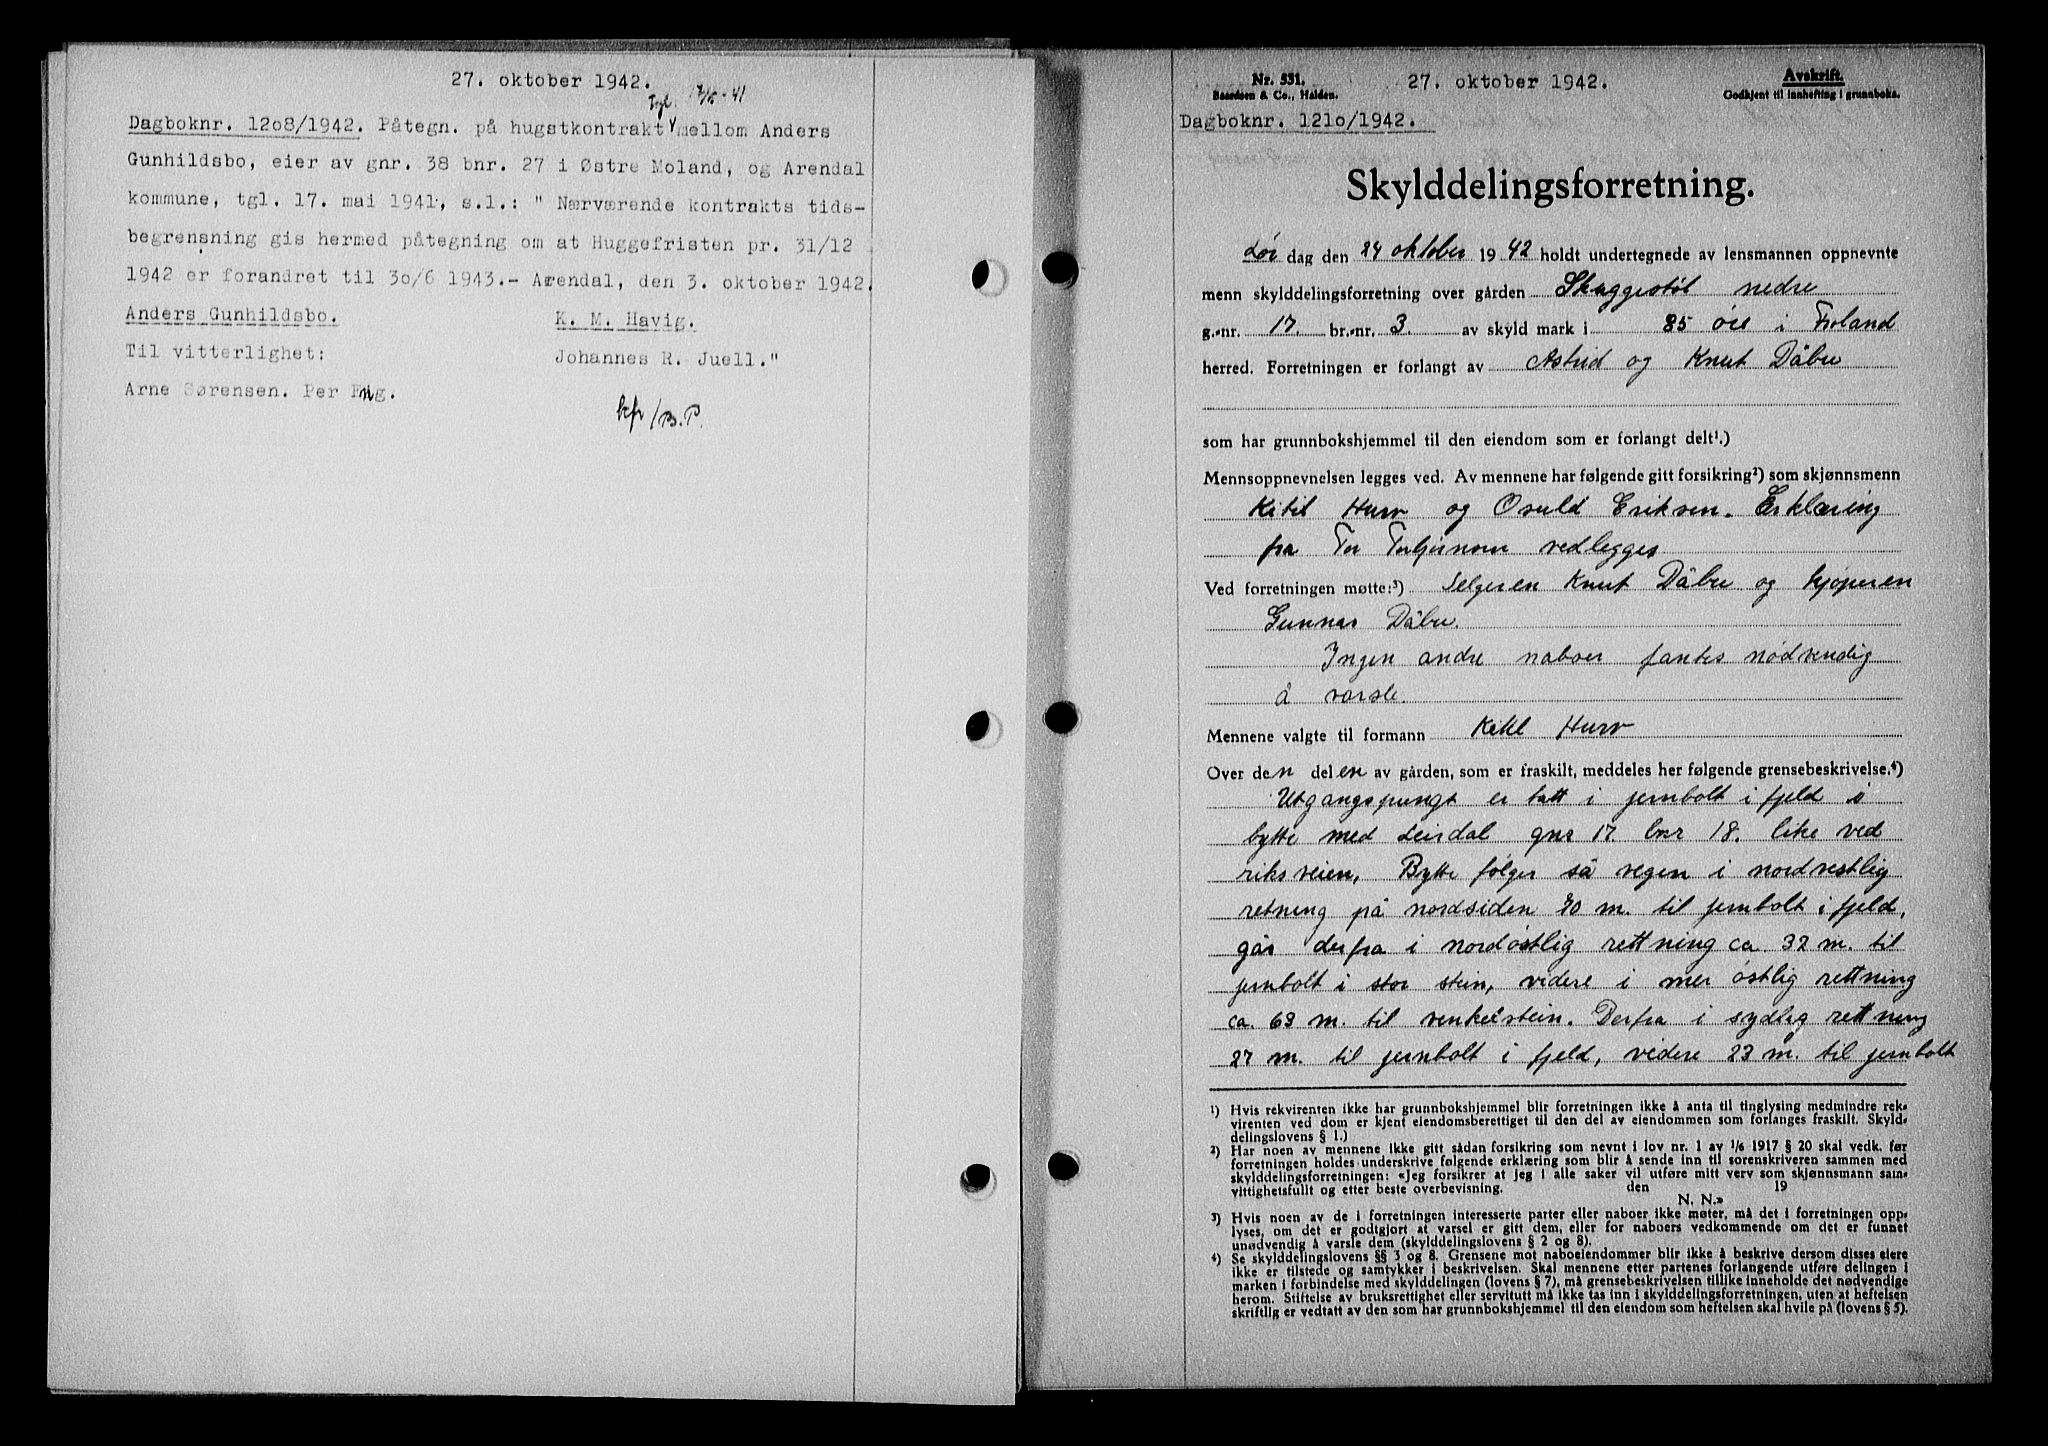 27. oktober 1942.
Tgl. 17/5-41
Dagboknr. 1208/1942. Påtegn. på hugstkontrakt mellom Anders
Gunhildsbo, eier av gnr. 38 bnr. 27 i Østre Moland, og Arendal
kommune, tgl. 17. mai 1941, s.l.: " Nærværende kontrakts tids-
begrensning gis hermed påtegning om at Huggefristen pr. 31/12
1942 er forandret til 30/6 1943.- Arendal, den 3. oktober 1942.
Anders Gunhildsbo. K. M. Havig.
Til vitterlighet: Johannes R. Juell."
Arne Sørensen. Per Eng.
kfr/B.P.
Nr. 531. 27. oktober 1942. Avskrift.
Baardsen & Co., Halden. Godkjent til innhefting i grunnboka.
Dagboknr. 1210/1942.
Skylddelingsforretning.
Lør dag den 24 oktober 1942 holdt undertegnede av lensmannen oppnevnte
menn skylddelingsforretning over gården Skuggestöl nedre
g.-nr. 17. br.-nr. 3. av skyld mark i 85 öre i Froland
herred. Forretningen er forlangt av Astrid og Knut Dåbu
som har grunnbokshjemmel til den eiendom som er forlangt delt¹.)
Mennsoppnevnelsen legges ved. Av mennene har følgende gitt forsikring²) som skjønnsmenn
Kitil Hurv og Osuld Eriksen. Erklæring
fra Tor vedlegges
Ved forretningen møtte:³) Selgeren Knut Dåbu og kjöperen
Gunnar Dåbu.
Ingen andre naboer fantes nödvendig
å varsle.
Mennene valgte til formann Kitil Hurv
Over den delen av gården, som er fraskilt, meddeles her følgende grensebeskrivelse.⁴)
Utgangspungt er tatt i jernbolt i fjeld i
bytte med Leirdal gnr 17. bnr 18. like ved
riksveien, Bytte fölger så vegen i nordvestlig
retning på nordsiden 70 m. til jernbolt i fjeld,
går derfra i nordöstlig rettning ca. 32 m. til
jernbolt i stor stein, videre i mer östlig rettning
ca. 63 m. til venkelstein. Derfra i sydlig rettning
27 m. til jernbolt i fjeld, videre 23 m. til jernbolt
¹) Hvis rekvirenten ikke har grunnbokshjemmel blir forretningen ikke å anta til tinglysing medmindre rek-
virenten ved dom er kjent eiendomsberettiget til den del av eiendommen som forlanges fraskilt. Skyld-
delingslovens § 1.)
²) Har noen av mennene ikke gitt sådan forsikring som nevnt i lov nr. 1 av 1/6 1917 § 20 skal vedk. før
forretningen holdes underskrive følgende erklæring som blir å sende inn til sorenskriveren sammen med
skylddelingsforretningen: «Jeg forsikrer at jeg i alle saker vil utføre mitt verv som skjønnsmann sam-
vittighetsfullt og etter beste overbevisning. den 19
N. N.»
³) Hvis noen av de i forretningen interesserte parter eller naboer ikke møter, må det i forretningen opp-
lyses, om det er godtgjort at varsel er gitt dem, eller for naboers vedkommende om det er funnet
unødvendig å varsle dem (skylddelingslovens § 2 og 8).
⁴) Se skylddelingslovens §§ 3 og 8. Grensene mot naboeiendommer blir ikke å beskrive dersom disses eiere
ikke er tilstede og samtykker i beskrivelsen. Skal mennene etter partenes forlangende utføre delingen i
marken i forbindelse med skylddelingen (lovens § 7), må grensebeskrivelsen tillike inneholde det nødvendige
herom. Stiftelse av bruksrettighet eller servitutt må ikke tas inn i skylddelingsforretningen, uten at heftelsen
skriftlig er vedtatt av den som har grunnbokshjemmel til den eiendom som heftelsen skal hvile på (lovens § 5).